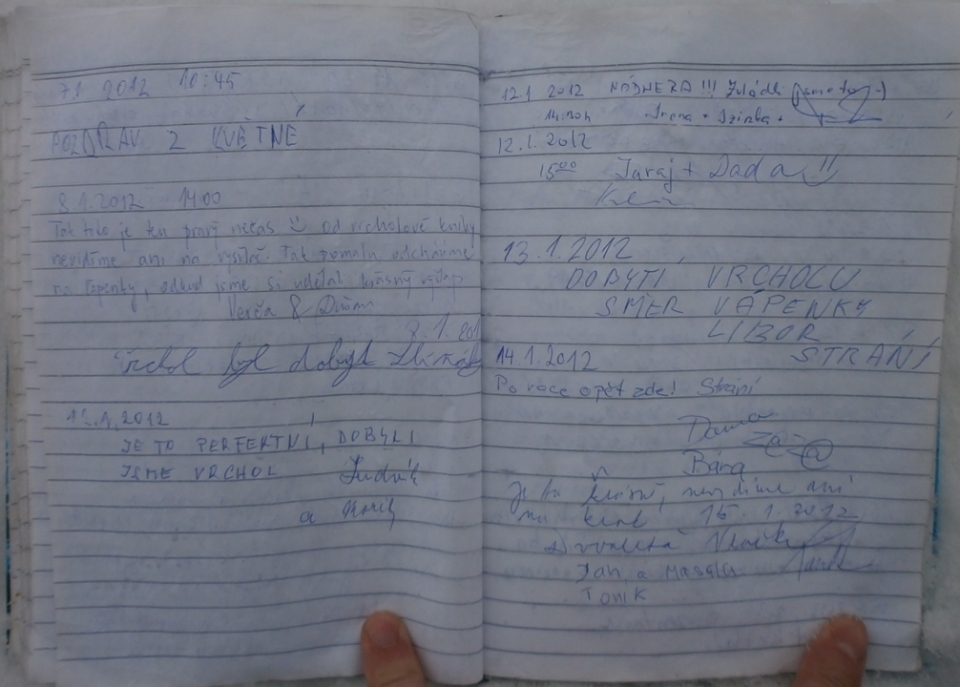 7.1 2012 10:45
POZDRAV Z KVĚTNÉ
8.1.2012 14.00
Tak toto je ten pravý nečas od vrcholové knihy
nevidíme ani na vysílač. Tak pomalu odcházíme
na Vápenky, odkud jsme si udělali krásný výšlap
Verča & Dušan
8.1.201
Vrchol byl dobyt
12.1.2012
JE TO PERFEKTNÍ, DOBYLI
JSME VRCHOL Luděk
a
12.1 2012 NÁDHERA!!! Zvládli jsme to :-)
14:20h Irena +
12.1.2012
15⁰⁰ Juraj + Dada
13.1.2012
DOBYTI VRCHOLU
SMĚR VÁPENKY
LIBOR
STRÁNÍ
14.1.2012
Po roce opět zde! Strání
Bára
Je tu krásně, nevidíme ani
na 15.1.2012
Jan a
Toník